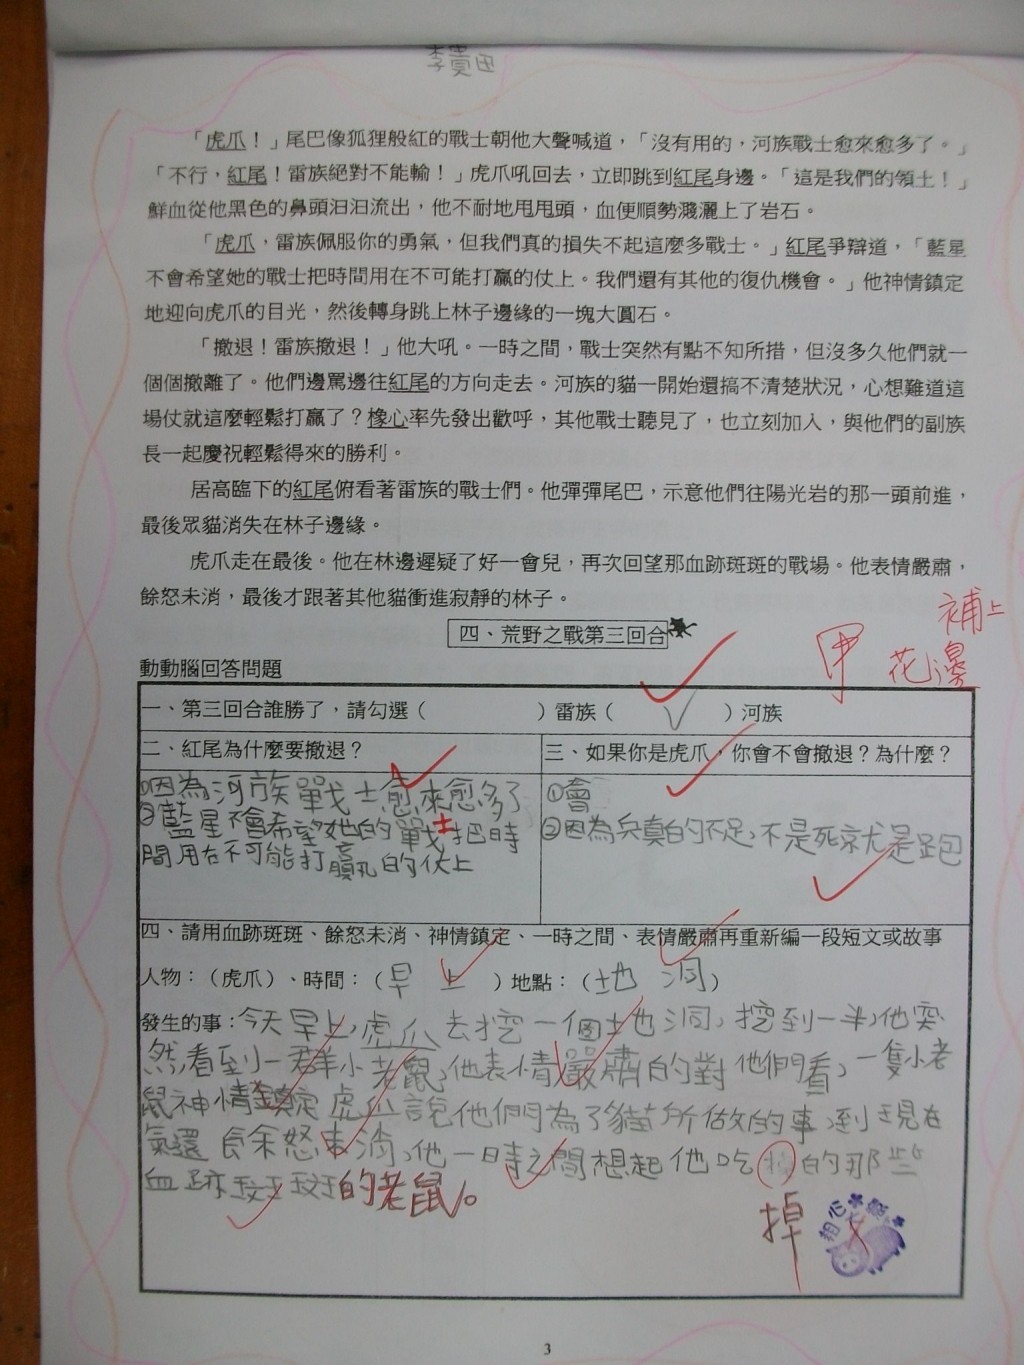 李
「虎爪！」尾巴像狐狸般紅的戰士朝他大聲喊道，「沒有用的，河族戰士愈來愈多了。」
「不行，紅尾！雷族絕對不能輸！」虎爪吼回去，立即跳到紅尾身邊。「這是我們的領土！」
鮮血從他黑色的鼻頭汩汩流出，他不耐地甩甩頭，血便順勢濺灑上了岩石。
「虎爪，雷族佩服你的勇氣，但我們真的損失不起這麼多戰士。」紅尾爭辯道，「藍星
不會希望她的戰士把時間用在不可能打贏的仗上。我們還有其他的復仇機會。」他神情鎮定
地迎向虎爪的目光，然後轉身跳上林子邊緣的一塊大圓石。
「撤退！雷族撤退！」他大吼。一時之間，戰士突然有點不知所措，但沒多久他們就一
個個撤離了。他們邊罵邊往紅尾的方向走去。河族的貓一開始還搞不清楚狀況，心想難道這
場仗就這麼輕鬆打贏了？橡心率先發出歡呼，其他戰士聽見了，也立刻加入，與他們的副族
長一起慶祝輕鬆得來的勝利。
居高臨下的紅尾俯看著雷族的戰士們。他彈彈尾巴，示意他們往陽光岩的那一頭前進，
最後眾貓消失在林子邊緣。
虎爪走在最後。他在林邊遲疑了好一會兒，再次回望那血跡斑斑的戰場。他表情嚴肅，
餘怒未消，最後才跟著其他貓衝進寂靜的林子。
四、荒野之戰第三回合
甲
補上
花邊
動動腦回答問題
一、第三回合誰勝了，請勾選（　　）雷族（ ✓ ）河族
二、紅尾為什麼要撤退？
①因為河族戰士愈來愈多了
②藍星不會希望她的戰士把時
間用在不可能打贏的仗上
三、如果你是虎爪，你會不會撤退？為什麼？
①會
②因為兵真的不足，不是死就是跑
四、請用血跡斑斑、餘怒未消、神情鎮定、一時之間、表情嚴肅再重新編一段短文或故事
人物：（虎爪）、時間：（早上）地點：（地洞）
發生的事：今天早上，虎爪去挖一個土地洞，挖到一半，他突
然看到一群小老鼠，他表情嚴肅的對他們看，一隻小老
鼠神情鎮定虎爪說他們為了貓所做的事，到現在
氣還餘怒未消，他一時之間想起他吃掉的那些
血跡斑斑的老鼠。
掉
粗心
3